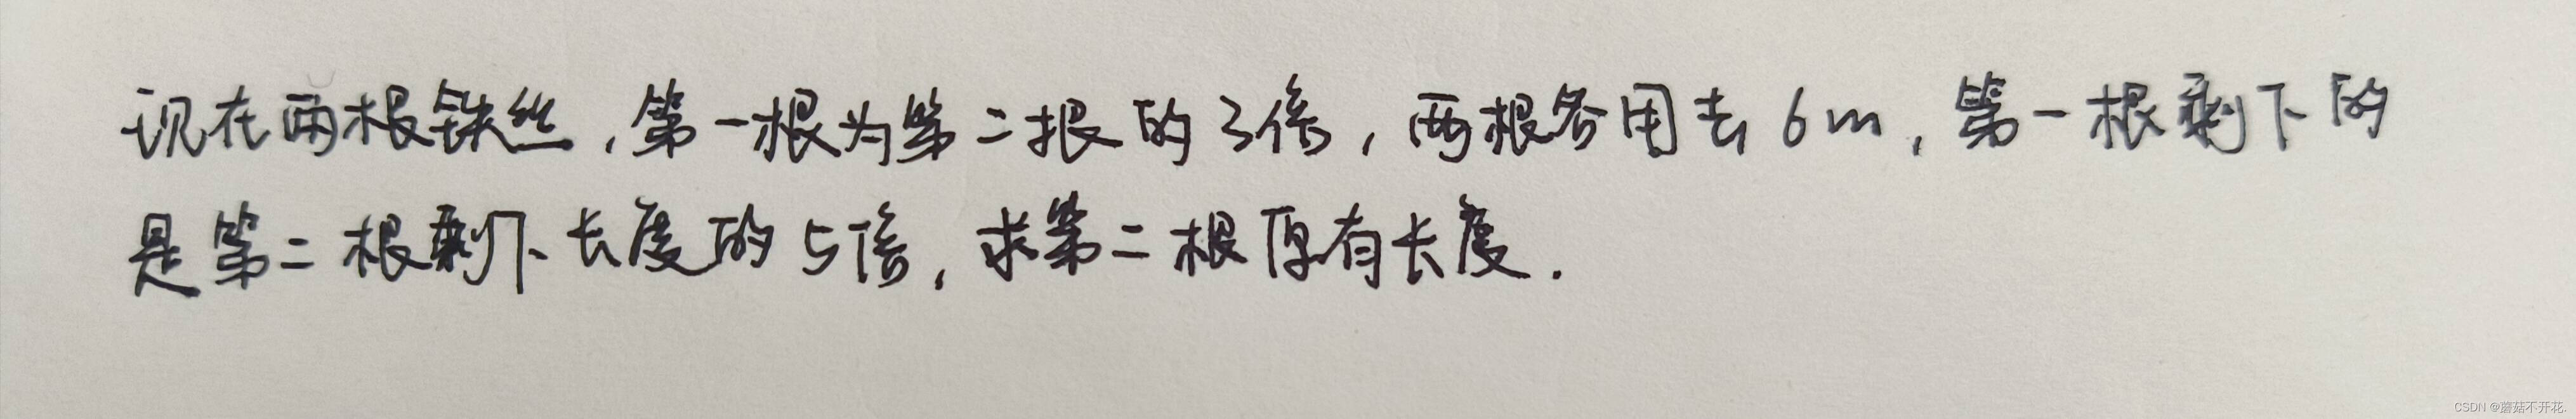 现在两根铁丝,第一根为第二根的3倍,两根各用去6m,第一根剩下的
是第二根剩下长度的5倍,求第二根原有长度.
CSDN @蘑菇不开花